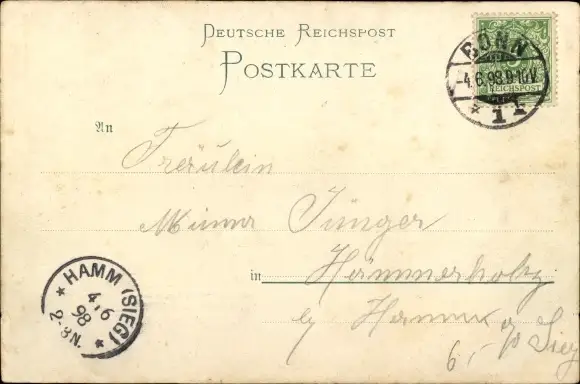 DEUTSCHE REICHSPOST
POSTKARTE
BONN
-4.6.98.9-10V.
* 1 *
REICHSPOST
An
Fräulein
Minna Jünger
in Hämmerholz
by Hamm a/d Sieg
6,-
* HAMM (SIEG) *
4/6
98
2-3N.